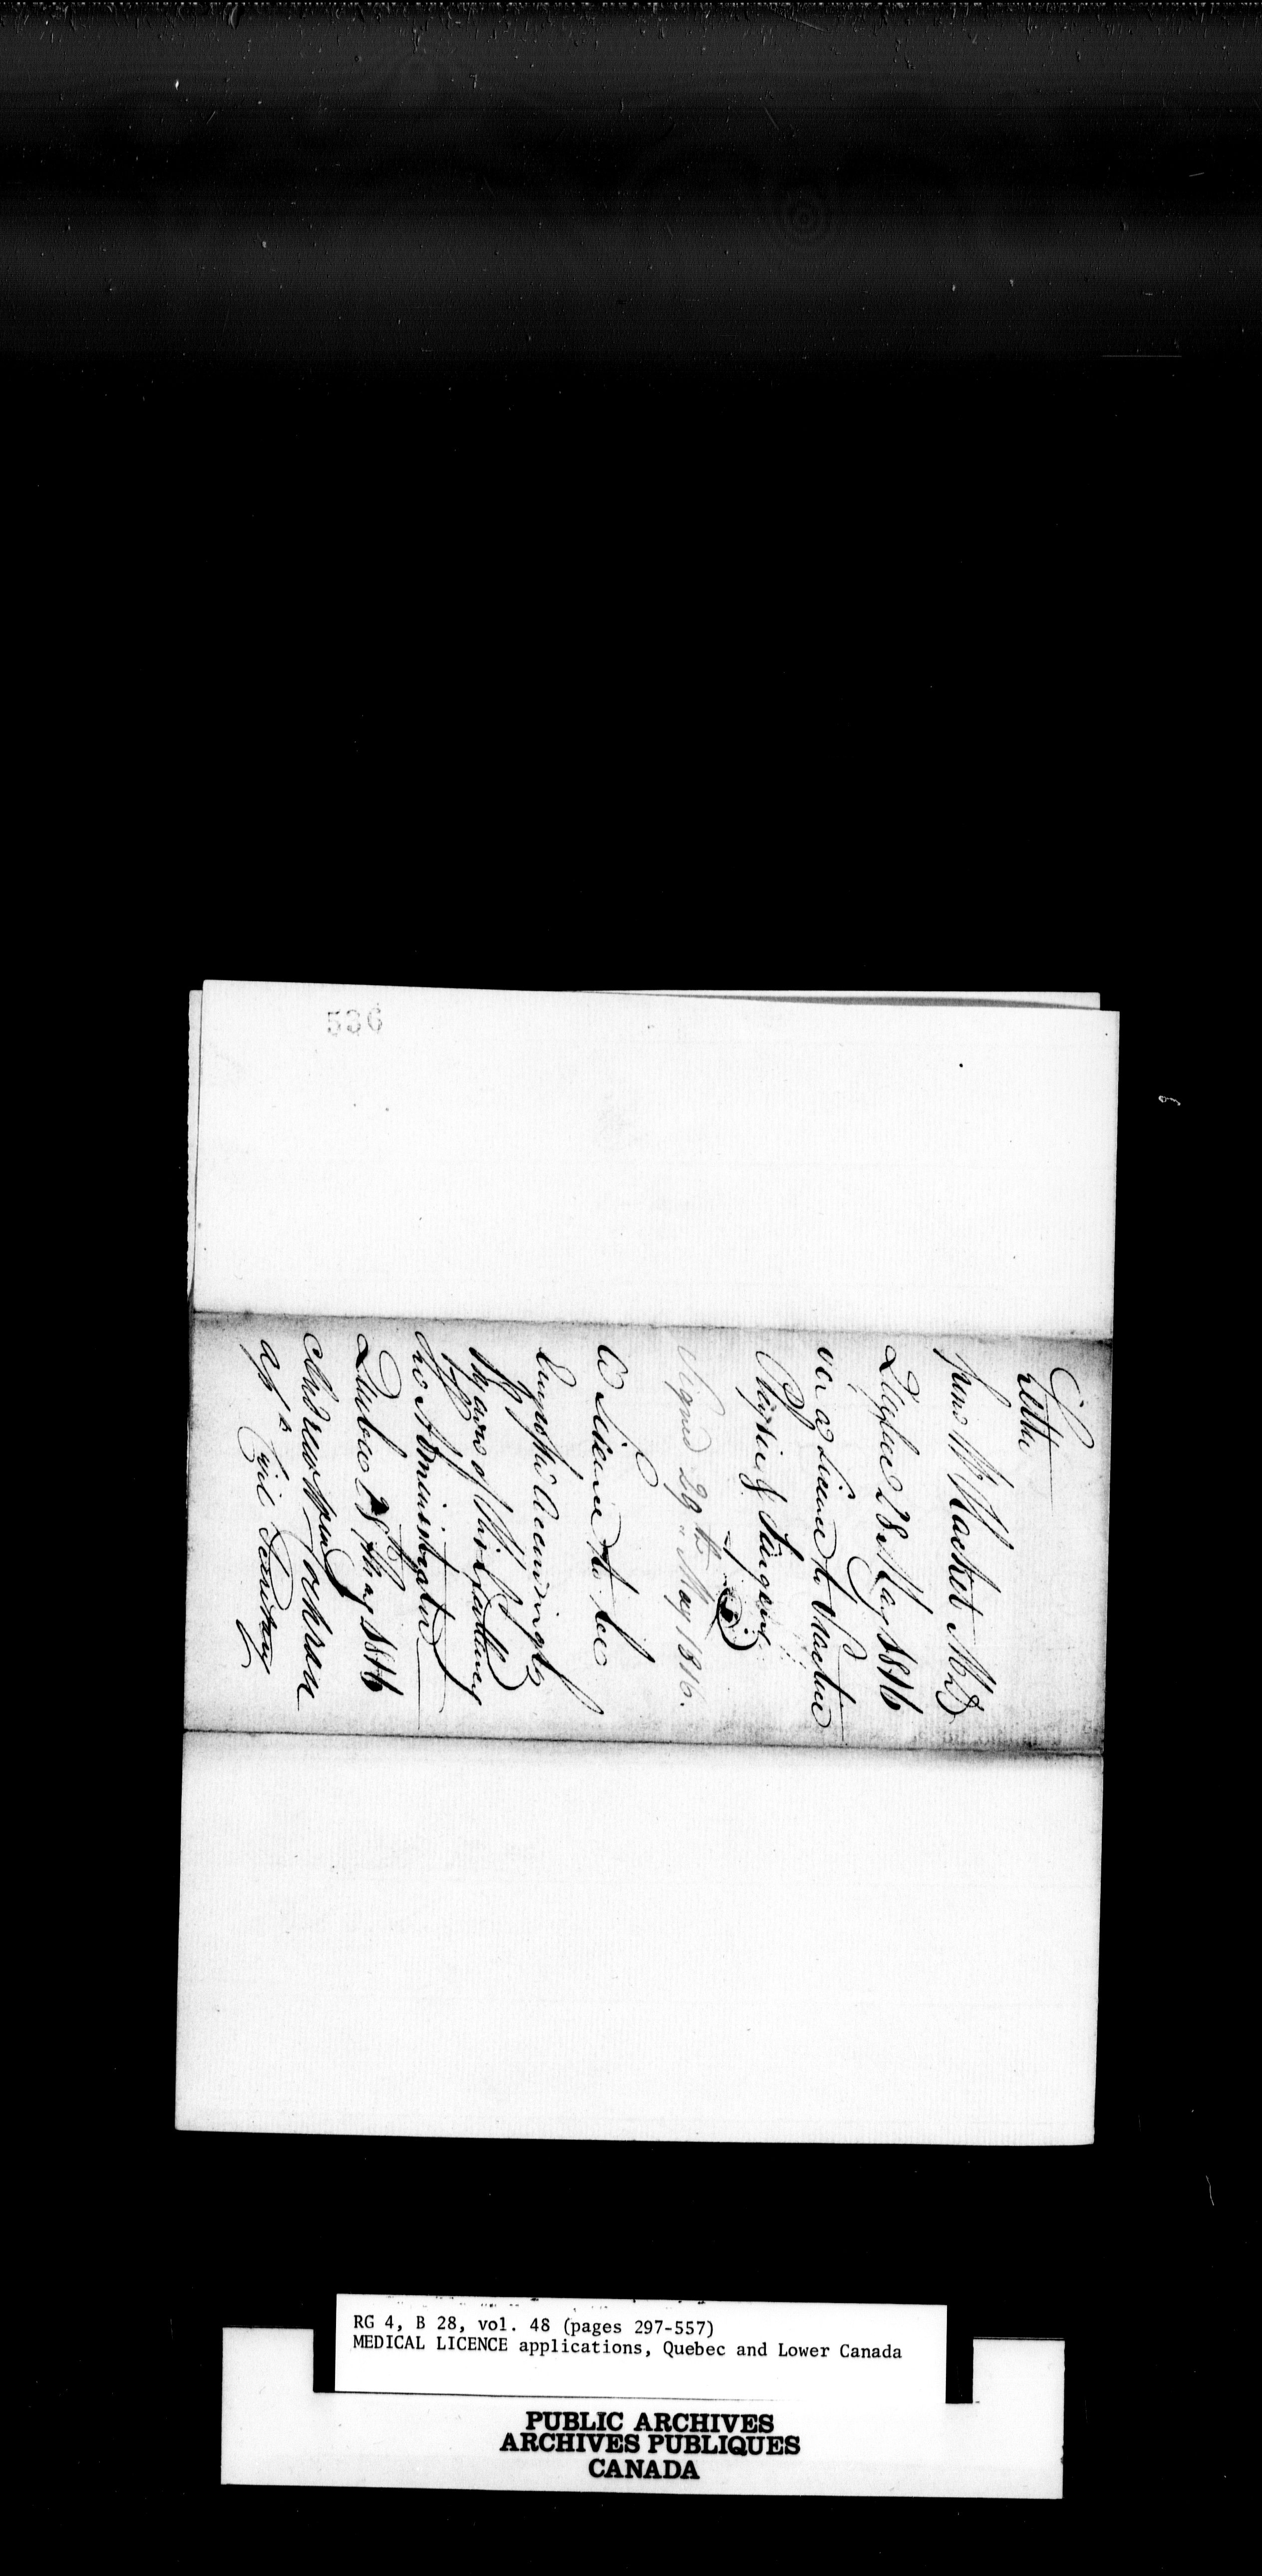 536
Letter
from W Hacket M.D
Quebec 28 May 1816
for a Licence to Practice
Physic & Surgery
Signed 29th May 1816.
A Licence to be
by order of His Excellency
the Administrator
Quebec 28th May 1816
Andrew Wm Cochran
Asst Civil Secretary
RG 4, B 28, vol. 48 (pages 297-557)
MEDICAL LICENCE applications, Quebec and Lower Canada
PUBLIC ARCHIVES
ARCHIVES PUBLIQUES
CANADA